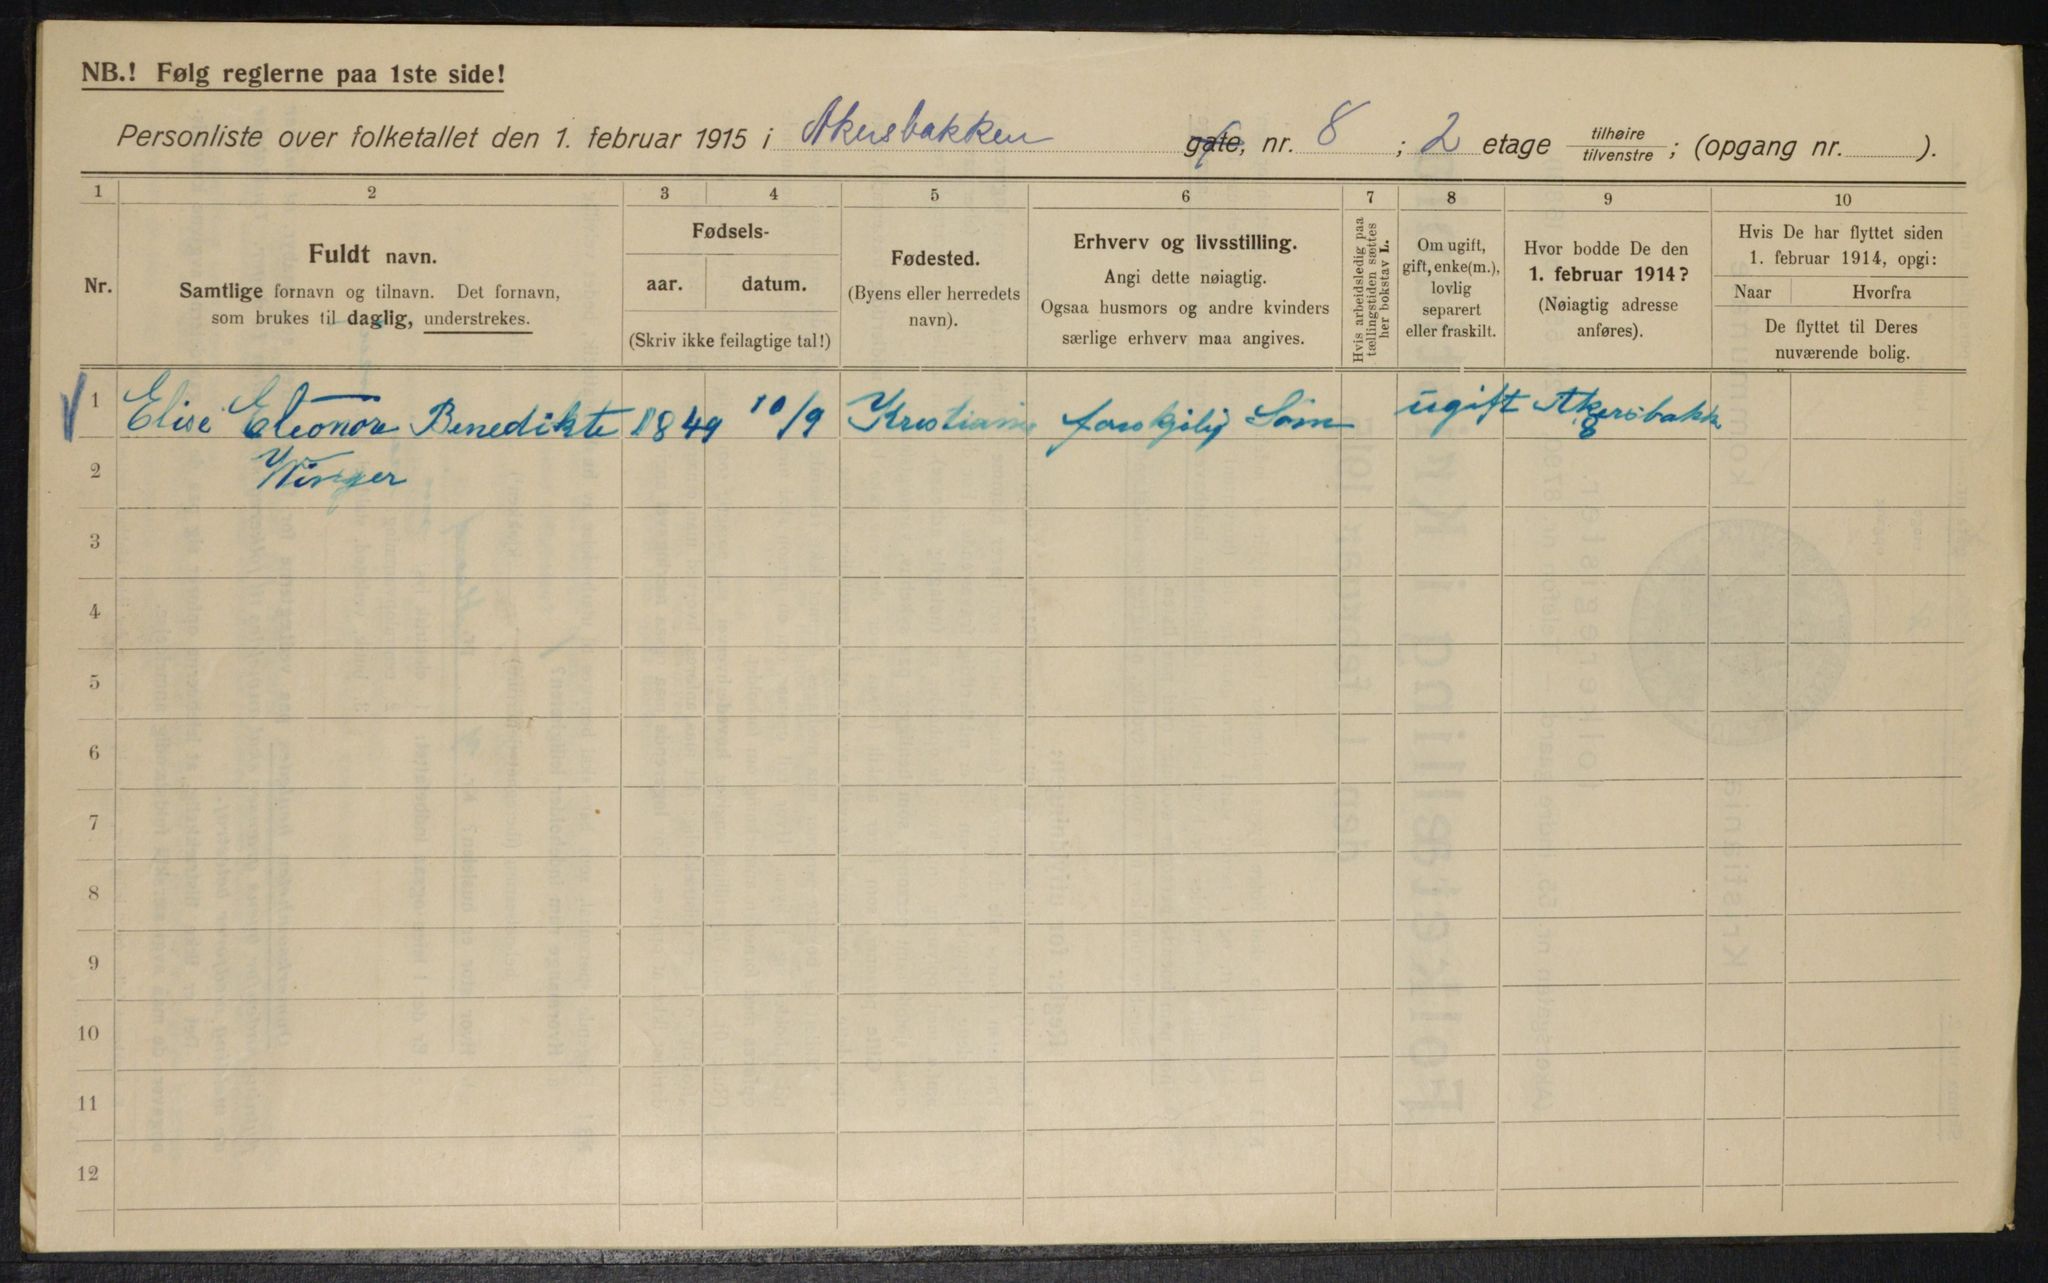 NB.! Følg reglerne paa 1ste side!
Personliste over folketallet den 1. februar 1915 i Akersbakken gate, nr. 8 ; 2 etage tilhøire tilvenstre ; (opgang nr. ).
1 2 3 4 5 6 7 8 9 10
Nr.
Fuldt navn.
Samtlige fornavn og tilnavn. Det fornavn,
som brukes til daglig, understrekes.
Fødsels-
aar. datum.
(Skriv ikke feilagtige tal!)
Fødested.
(Byens eller herredets
navn).
Erhverv og livsstilling.
Angi dette nøiagtig.
Ogsaa husmors og andre kvinders
særlige erhverv maa angives.
Hvis arbeidsledig paa
tællingstiden sættes
her bokstav L.
Om ugift,
gift, enke(m.),
lovlig
separert
eller fraskilt.
Hvor bodde De den
1. februar 1914?
(Nøiagtig adresse
anføres).
Hvis De har flyttet siden
1. februar 1914, opgi:
Naar Hvorfra
De flyttet til Deres
nuværende bolig.
1 Elise Eleonore Benedikte 1849 10/9 Kristiania ugift Akersbakk
8
2 Winger
3
4
5
6
7
8
9
10
11
12